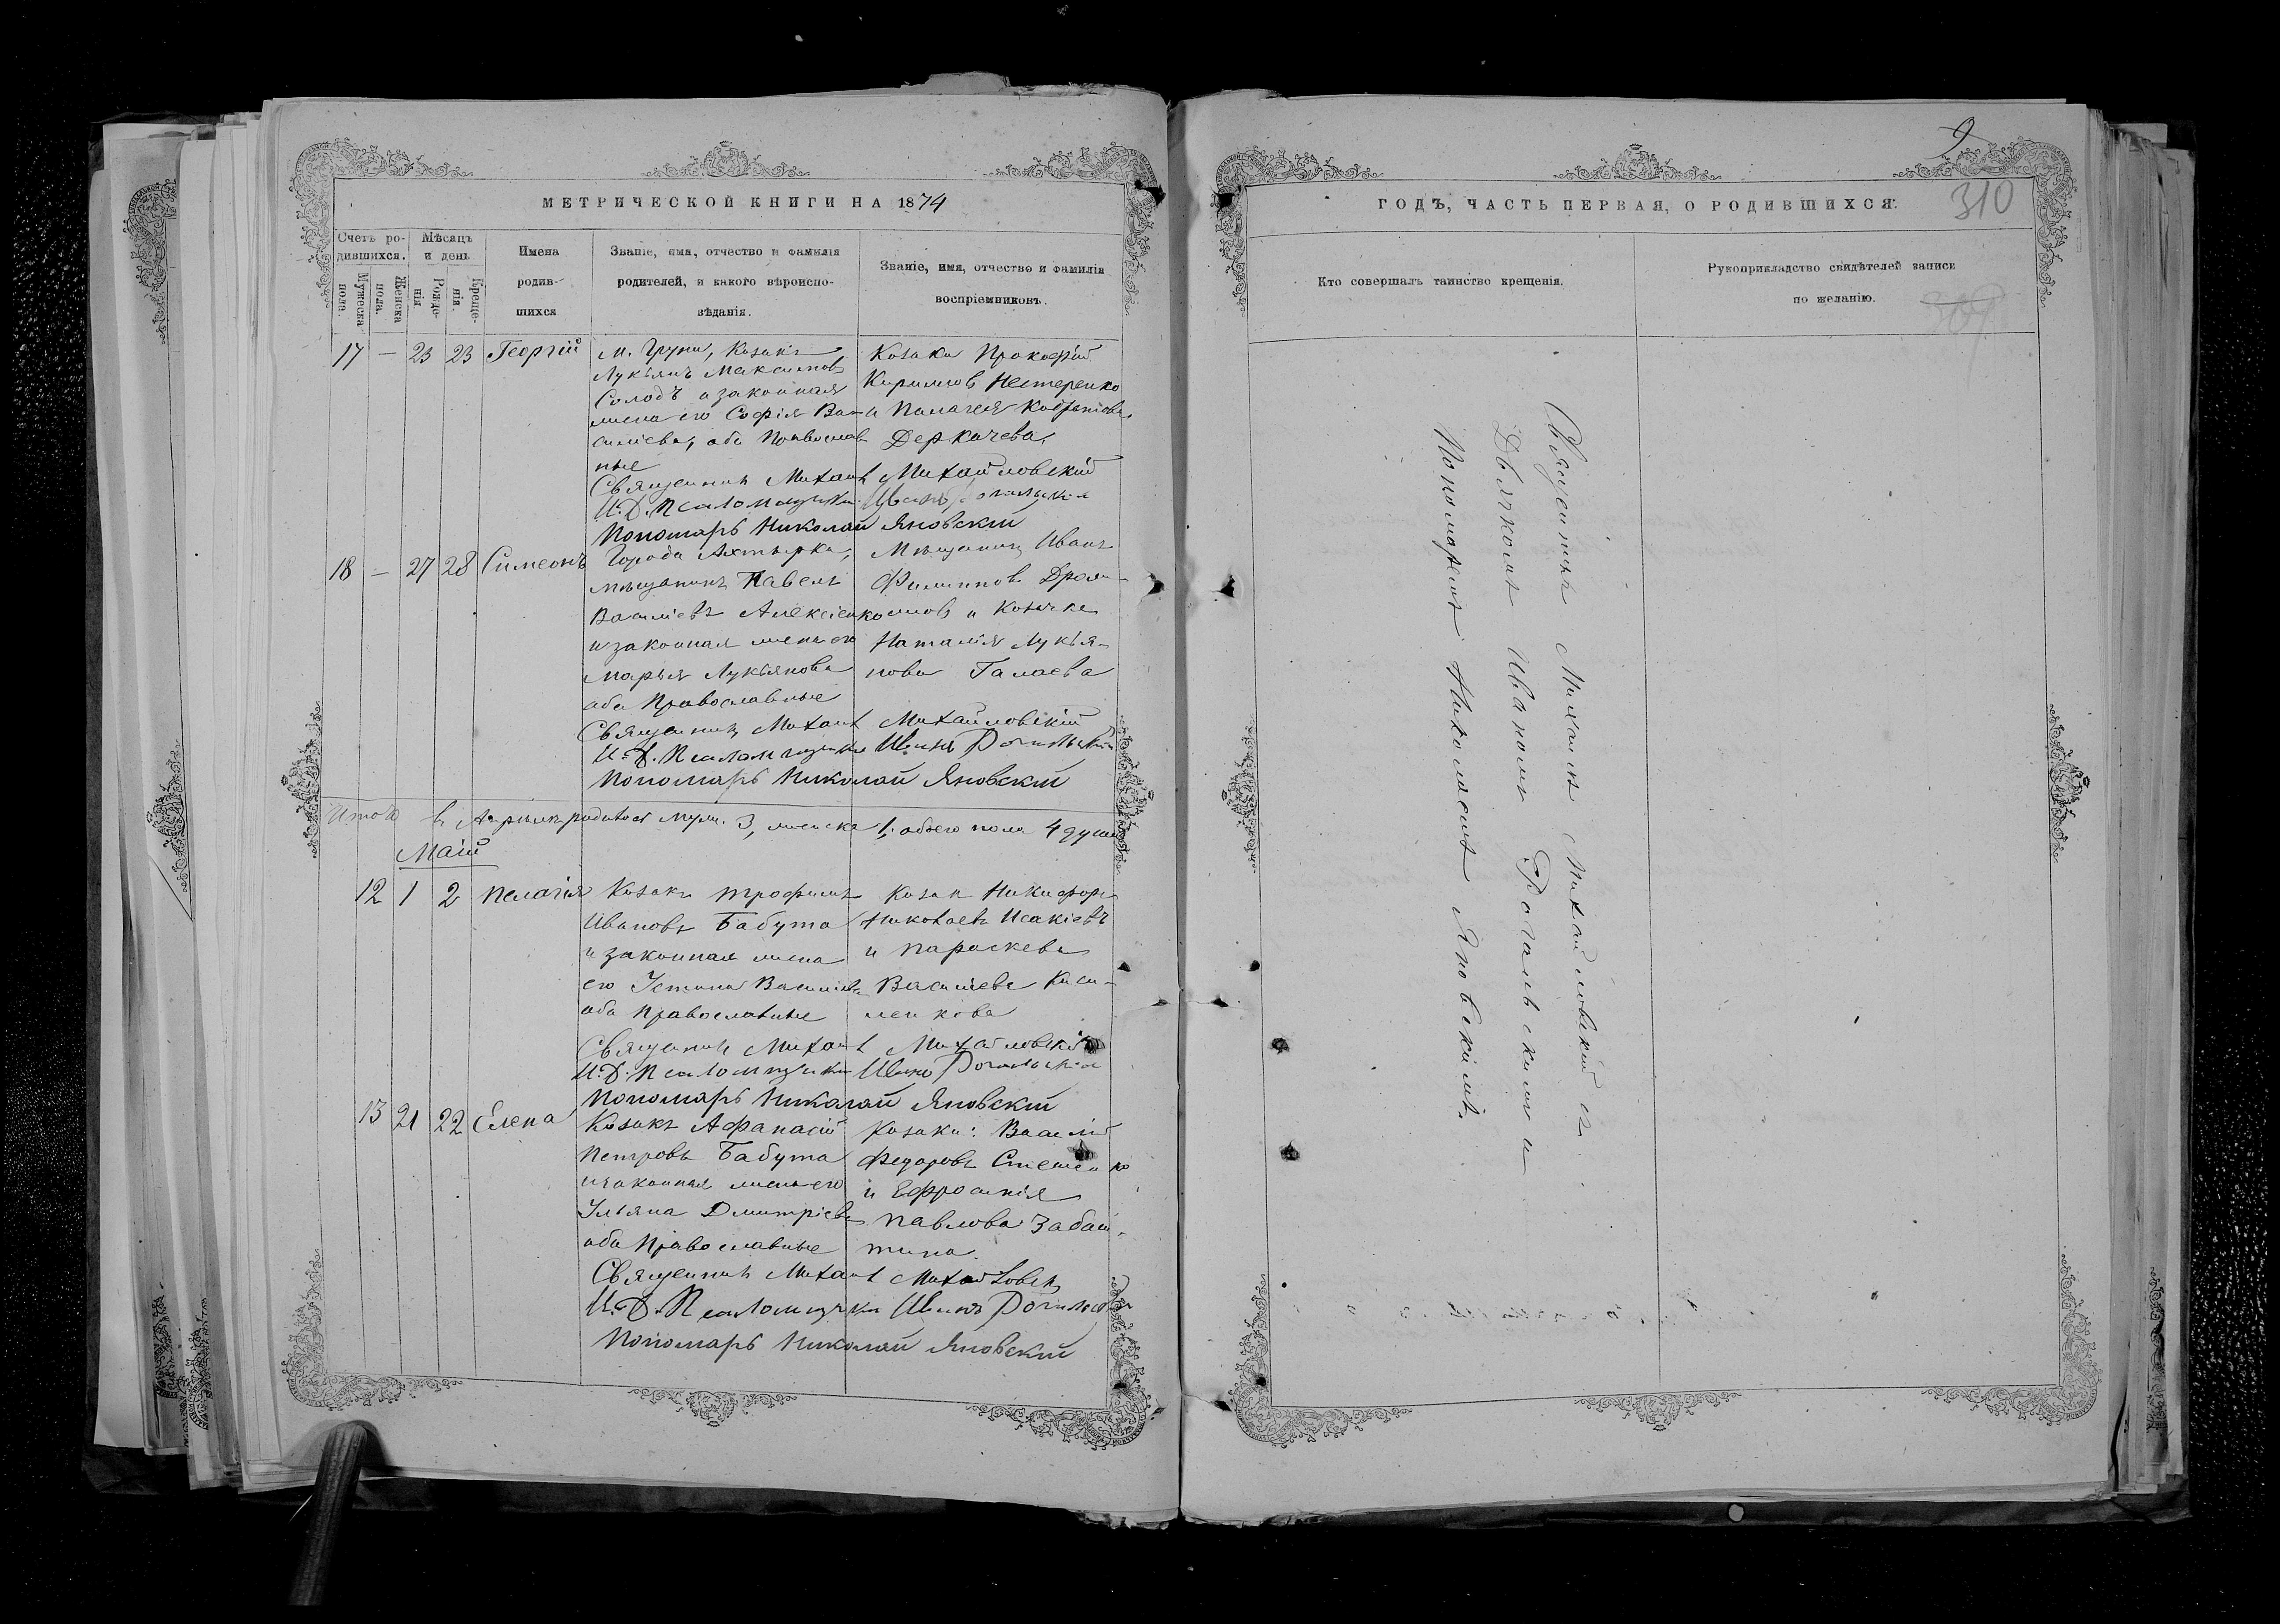 МЕТРИЧЕСКОЙ КНИГИ НА 1874
Счетъ ро-
дившихся.
Мѣсяцъ
и день
Мужеска
пола.
Женска
пола.
Рожде-
нія
Креще-
нія.
Имена
родив-
шихся
Званіе, имя, отчество и фамилія
родителей, и какого вѣроиспо-
вѣданія.
Званіе, имя, отчество и фамилія
воспріемниковъ.
17 — 23 23 Георгій
м. Груни, Козакъ
Лукіянъ Максимовъ
Солодъ и законная
жена его Софія Ва-
силіева, оба Православ
ные
Козаки Прокофій
Кириловъ Нестеренко
и Палагея Кодратова
Деркачева,
Священникъ Михаилъ Михайловскій
И. Д. Псаломщика Иванъ
Пономарь Николай Яновскій
18 — 27 28 Симеонъ
Города Ахтырки,
мѣщанинъ Павелъ
Василіевъ Алексіенко
и законная жена его
Марія Лукіянова
оба Православные
Мѣщанинъ Иванъ
Филиповъ
и Козачка
Наталія Лукія-
нова Галаева
Священникъ Михаилъ Михайловскій
И. Д. Псаломщика Иванъ Рогальскій
Пономарь Николай Яновскій
Итого въ Апрѣлѣ родилось муж. 3, женска 1, обоего пола 4 души
Маій
12 1 2 Пелагія
Козакъ Трофимъ
Ивановъ Бабута
и законная жена
его Устина Василіева
оба Православные
Козак Никифоръ
Николаевъ Исакіевъ
и Параскева
Василіева Киси-
ленкова
Священникъ Михаилъ Михайловскій
И. Д. Псаломщика Иванъ Рогальскій
Пономарь Николай Яновскій
13 21 22 Елена
Козакъ Афанасій
Петровъ Бабута
и законная жена его
Уліяна Дмитріева
оба Православные
Козаки: Василій
Федоровъ Стешенко
и Ефросинія
Павлова Забаш-
тина.
Священникъ Михаилъ Михайловск
И. Д. Псаломщика Иванъ Рогальскій
Пономарь Николай Яновскій
9
310
ГОДЪ, ЧАСТЬ ПЕРВАЯ, О РОДИВШИХСЯ.
Кто совершалъ таинство крещенія.
Рукоприкладство свидѣтелей записи
по желанію.
309
Священникъ Михаилъ Михайловскій съ
Дьячкомъ Иваномъ Рогальскимъ и
Пономаремъ Николаемъ Яновскимъ.